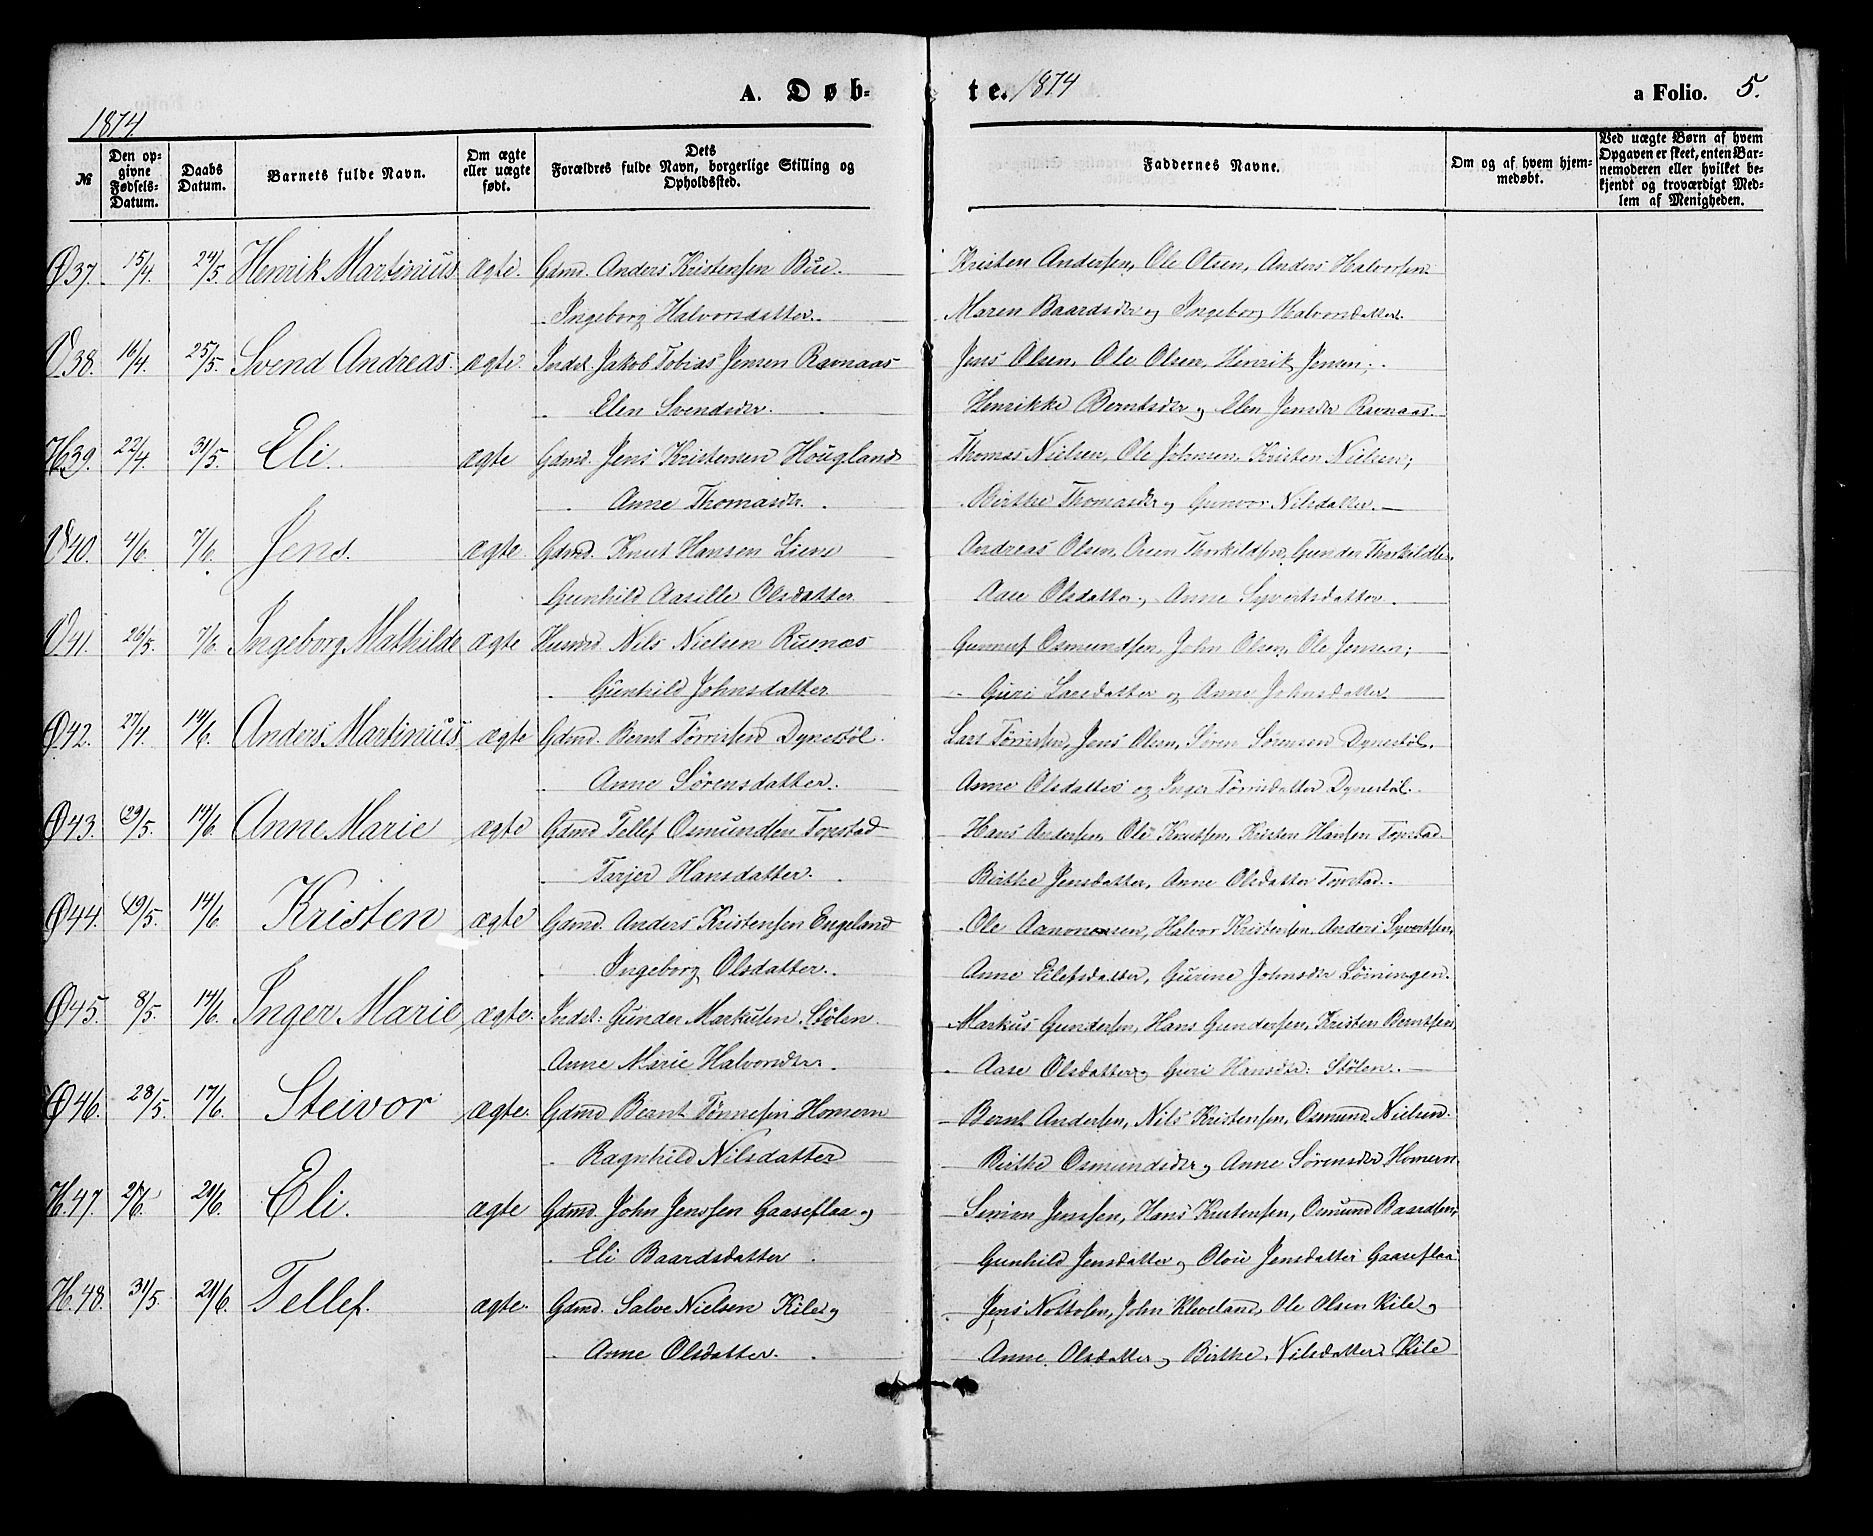 A. Døb- te. 1874
a Folio. 5.
1874
№
Den op-
givne
Fødsels-
Datum.
Daabs
Datum.
Barnets fulde Navn.
Om ægte
eller uægte
født.
Dets
Forældres fulde Navn, borgerlige Stilling og
Opholdssted.
Faddernes Navne.
Om og af hvem hjem-
medøbt.
Ved uægte Børn af hvem
Opgaven er skeet, enten Bar-
nemoderen eller hvilket be-
kjendt og troværdigt Med-
lem af Menigheden.
Ø37. 15/4. 24/5. Henrik Martinius ægte. Gdmd. Anders Kristensen Bue. Kristen Andersen, Ole Olsen, Anders Halvorsen
Ingeborg Halvorsdatter. Maren Baardsdr og Ingeborg Halvorsdatter.
V38. 16/4. 25/5. Svend Andreas. ægte. Inders. Jakob Tobias Jensen Ravnaas Jens Olsen, Ole Olsen, Henrik Jensen;
Elen Svendsdr. Henrikke Berntsdr og Elen Jensdr Ravnaas.
H39. 22/4. 31/5. Eli. ægte Gdmd. Jens Kristensen Hougland Thomas Nielsen, Ole Johnsen, Kristen Nielsen;
Anne Thomasdr. Birthe Thomasdr og Gunvor Nilsdatter.
V40. 4/6. 7/6. Jens. ægte. Gdmd. Knut Hansen Liene Andreas Olsen, Oun Thorkildsen, Gunder Thorkildsen,
Gunhild Aasille Olsdatter Aase Olsdatter og Anne Syvertsdatter.
V41. 26/5. 7/6. Ingeborg Mathilde ægte Husmd. Nils Nielsen Ruenæs Gunnuf Osmundsen, John Olsen, Ole Jensen;
Gunhild Johnsdatter Guri Larsdatter og Anne Johnsdatter
Ø42. 27/4. 14/6. Anders Martinius ægte Gdmd. Bernt Tørrissen Dynestøl. Lars Tørrissen, Jens Olsen, Søren Sørensen Dynestøl.
Anne Sørensdatter. Anne Olsdatter og Inger Tørrisdatter Dynestøl.
Ø43. 29/5. 14/6. Anne Marie ægte Gdmd Tellef Osmundsen Topstad Hans Andersen, Ole Knutsen, Kristen Hansen Topstad.
Tarjer Hansdatter. Birthe Jensdatter, Anne Olsdatter Topstad.
Ø44. 19/5. 14/6. Kristen ægte Gdmd. Anders Kristensen Engeland Ole Aanonsen, Halvor Kristensen, Anders Syvertsen,
Ingeborg Olsdatter. Anne Eilefsdatter, Gurine Johnsdr Løiningen.
Ø45. 8/5. 14/6. Inger Marie ægte. Inders: Gunder Markusen Stølen. Markus Gundersen, Hans Gundersen, Kristen Berntsen
Anne Marie Halvorsdr. Aase Olsdatter og Guri Hansdr. Stølen.
Ø46. 28/5. 17/6. Steivor ægte. Gdmd Bernt Tønnesen Homem Bernt Andersen, Nils Kristensen, Osmund Nielsen.
Ragnhild Nilsdatter Birthe Osmundsdr og Anne Sørensdr Homem.
H.47. 2/6. 21/6. Eli. ægte Gdmd. John Jenssen Gaaseflaa og Simon Jenssen, Hans Kristensen, Osmund Baardsen,
Eli Baardsdatter. Gunhild Jensdatter og Olou Jensdatter Gaaseflaa
H.48. 31/5. 21/6. Tellef. ægte. Gdmd. Salve Nielsen Kile og Jens Nottolen, John Kleveland, Ole Olsen Kile og
Anne Olsdatter. Anne Olsdatter og Birthe Nilsdatter Kile